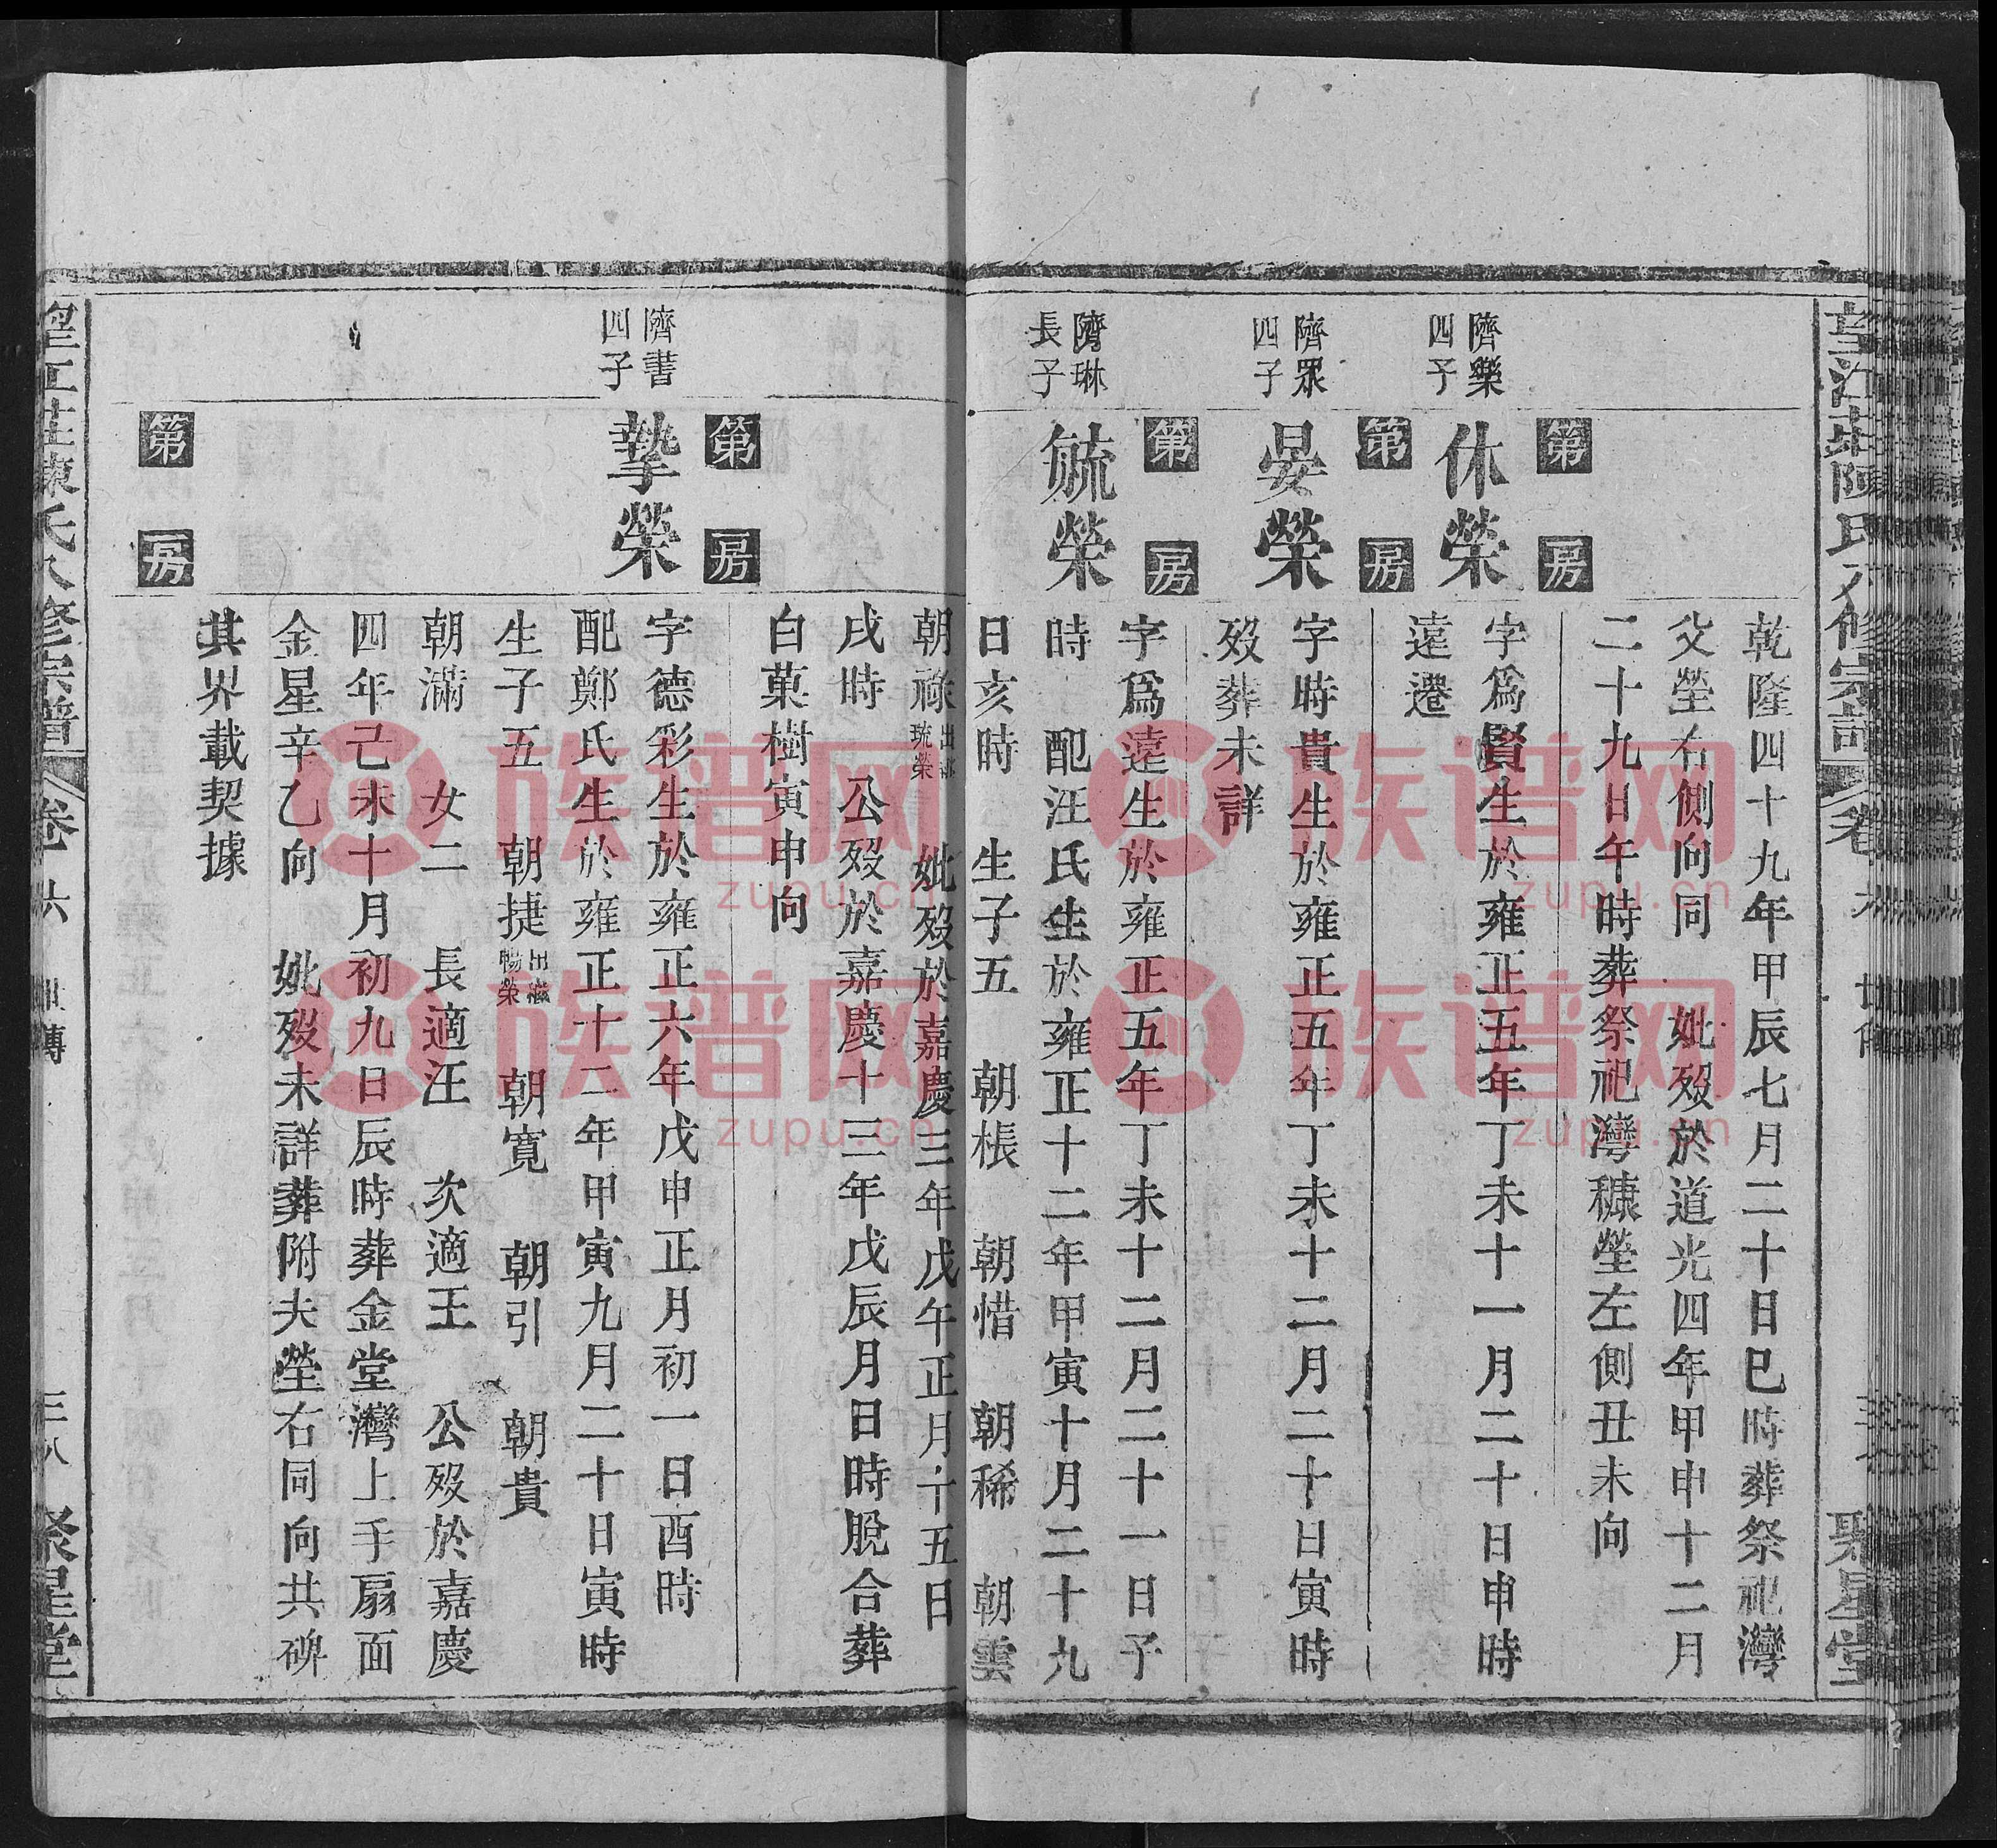 乾隆四十九年甲辰七月二十日巳時葬祭祀灣
父塋右側向同　妣歿於道光四年甲申十二月
二十九日午時葬祭祀灣穅塋左側丑未向
第　房
隮樂
四子
休榮
字爲賢生於雍正五年丁未十一月二十日申時
遠遷
第　房
隮眾
四子
晏榮
字時貴生於雍正五年丁未十二月二十日寅時
歿葬未詳
第　房
隮琳
長子
毓榮
字爲遠生於雍正五年丁未十二月二十一日子
時　配汪氏生於雍正十二年甲寅十月二十九
日亥時　生子五　朝棖　朝惜　朝稀　朝雲
朝祿 出 琉榮　妣歿於嘉慶三年戊午正月十五日
戌時　公歿於嘉慶十三年戊辰月日時脫合葬
白菓樹寅申向
第　房
隮書
四子
摯榮
字德彩生於雍正六年戊申正月初一日酉時
配鄭氏生於雍正十二年甲寅九月二十日寅時
生子五　朝捷 出 暢榮　朝寬　朝引　朝貴
朝滿　女二　長適汪　次適王　公歿於嘉慶
四年己未十月初九日辰時葬金堂灣上手扇面
金星辛乙向　妣歿未詳葬附夫塋右同向共碑
其界載契據
第　房
陳氏八修宗譜　卷十六　世傳　三八　聚星堂
族谱网
zupu.cn
族谱网
zupu.cn
族谱网
zupu.cn
族谱网
zupu.cn